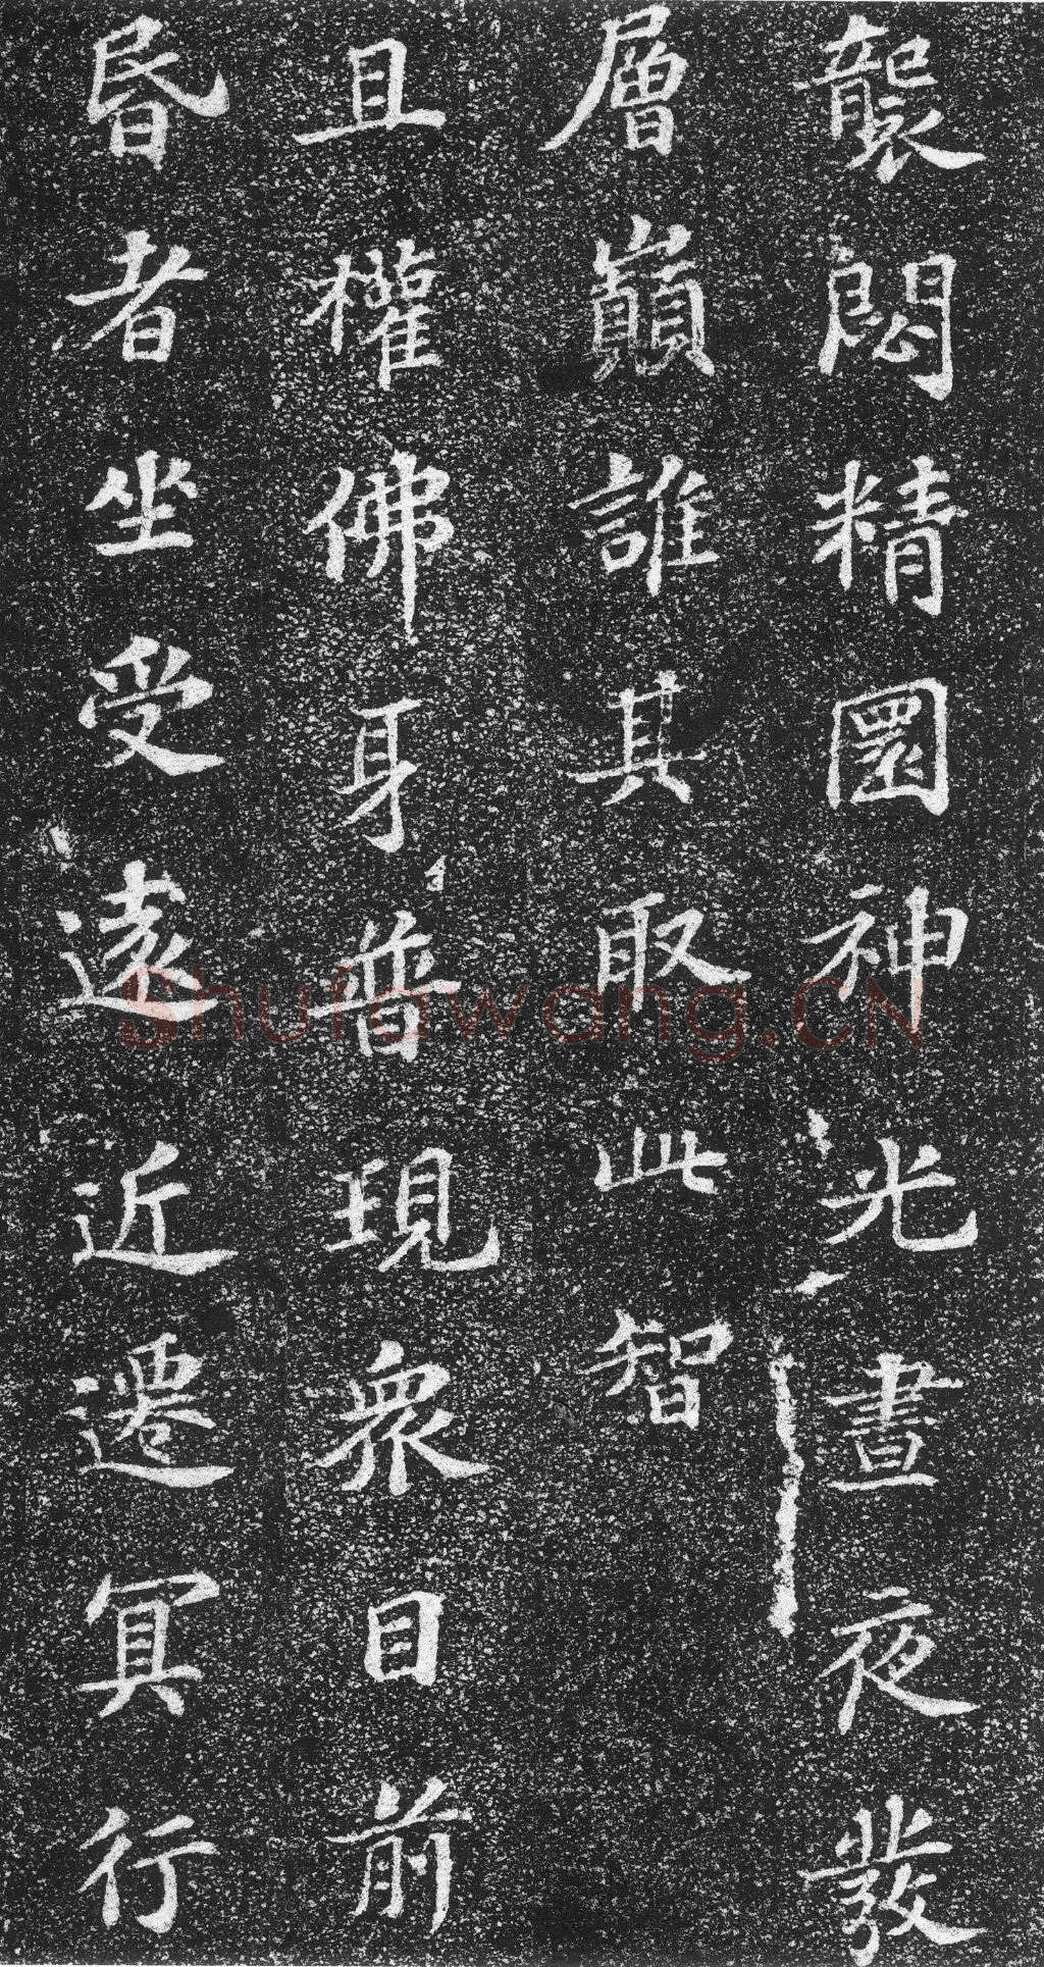 襲閟精圜神光晝夜發
層巔誰其取此智
且權佛身普現衆目前
昬者坐受遠近遷冥行
Shufawang.CN